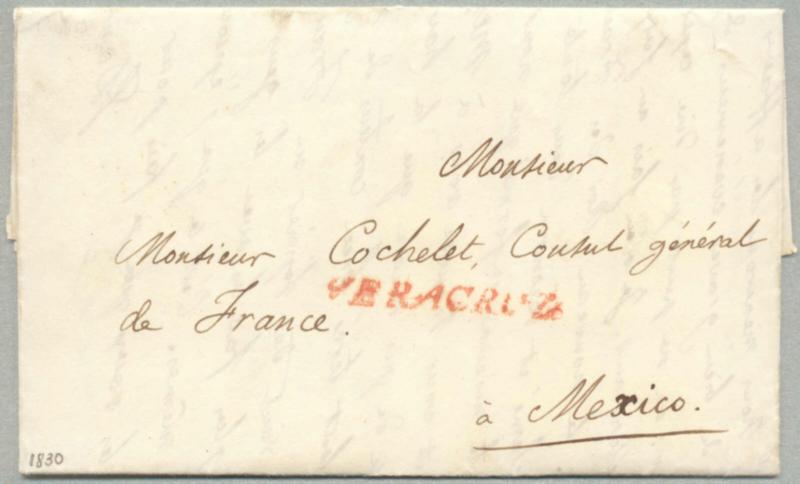 Monsieur
Monsieur Cochelet, Consul général
de France.
VERACRUZ
à Mexico.
1830